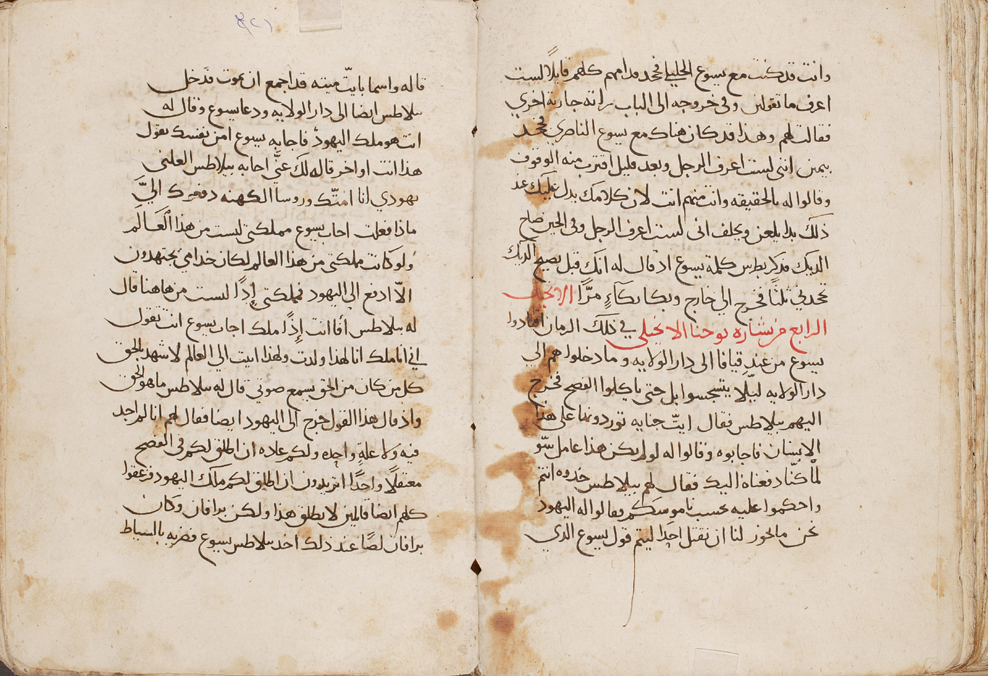 وانت قد كنت مع يسوع الجليلي فجحد قدامهم كلهم قايلا لست
اعرف ما تقولين وفي خروجه الى الباب راته جاريه اخرى
فقالت لهم وهذا قد كان هناك مع يسوع الناصري فجحد
بيمين انني لست اعرف الرجل وبعد قليل اقترب منه الوقوف
وقالوا له بالحقيقه وانت منهم انت لان كلامك يدل عليك عند
ذلك بدا يلعن ويحلف اني لست اعرف الرجل وفي الحين صاح
الديك فذكر بطرس كلمة يسوع اذ قال له انك قبل يصيح الديك
تجحدني ثلثًا فخرج الى خارج وبكا بكآءً مرًّا الانجيل
الرابع من بشارة يوحنا الانجيلي في ذلك الزمان اقتادوا
يسوع من عند قيافا الى دار الولايه وما دخلوا هم الى
دار الولايه ليلّا يتنجسوا بل حتى ياكلوا الفصح فخرج
اليهم بيلاطس فقال ايّت جنايه توردونها على هذا
الانسان فاجابوه وقالوا له لو لم يكن هذا عامل سّو
لما كنّا دفعناه اليك فقال لهم بيلاطس خذوه انتم
واحكموا عليه بحسب ناموسكم فقالوا له اليهود
نحن ما يجوز لنا ان نقتل احدًا ليتم قول يسوع الذي
قاله واسما بايت ميته قد اجمع ان يموت فدخل
بيلاطس ايضا الى دار الولايه ودعا يسوع وقال له
انت هو ملك اليهود فاجابه يسوع امن نفسك تقول
هذا انت او اخر قاله لك عنّي اجابه بيلاطس العلني
يهودي انا امتك وروسآ الكهنه دفعوك اليّ
ماذا فعلت اجاب يسوع مملكتي ليست من هذا العالم
ولو كانت مملكتي من هذا العالم لكان خدامي يجتهدون
الّا ادفع الى اليهود فملكتي إذًا ليست من هاهنا قال
له بيلاطس افا انت إذًا ملك اجاب يسوع انت تقول
اني انا ملك انا لهذا ولدت ولهذا اتيت الى العالم لاشهد بالحق
كل من كان من الحق يسمع صوتي قال له بيلاطس ما هو الحق
واذ قال هذا القول خرج الى اليهود ايضا فقال لهم انا لم اجد
فيه ولا علةٍ واحده ولكم عاده ان اطلق لكم في الفصح
معتقلًا واحدًا اتريدون ان اطلق لكم ملك اليهود فزعقوا
كلهم ايضا قايلين لا يطلق هذا ولكن برافان وكان
برافان لصًا عند ذلك اخذ بيلاطس يسوع فضربه بالسياط